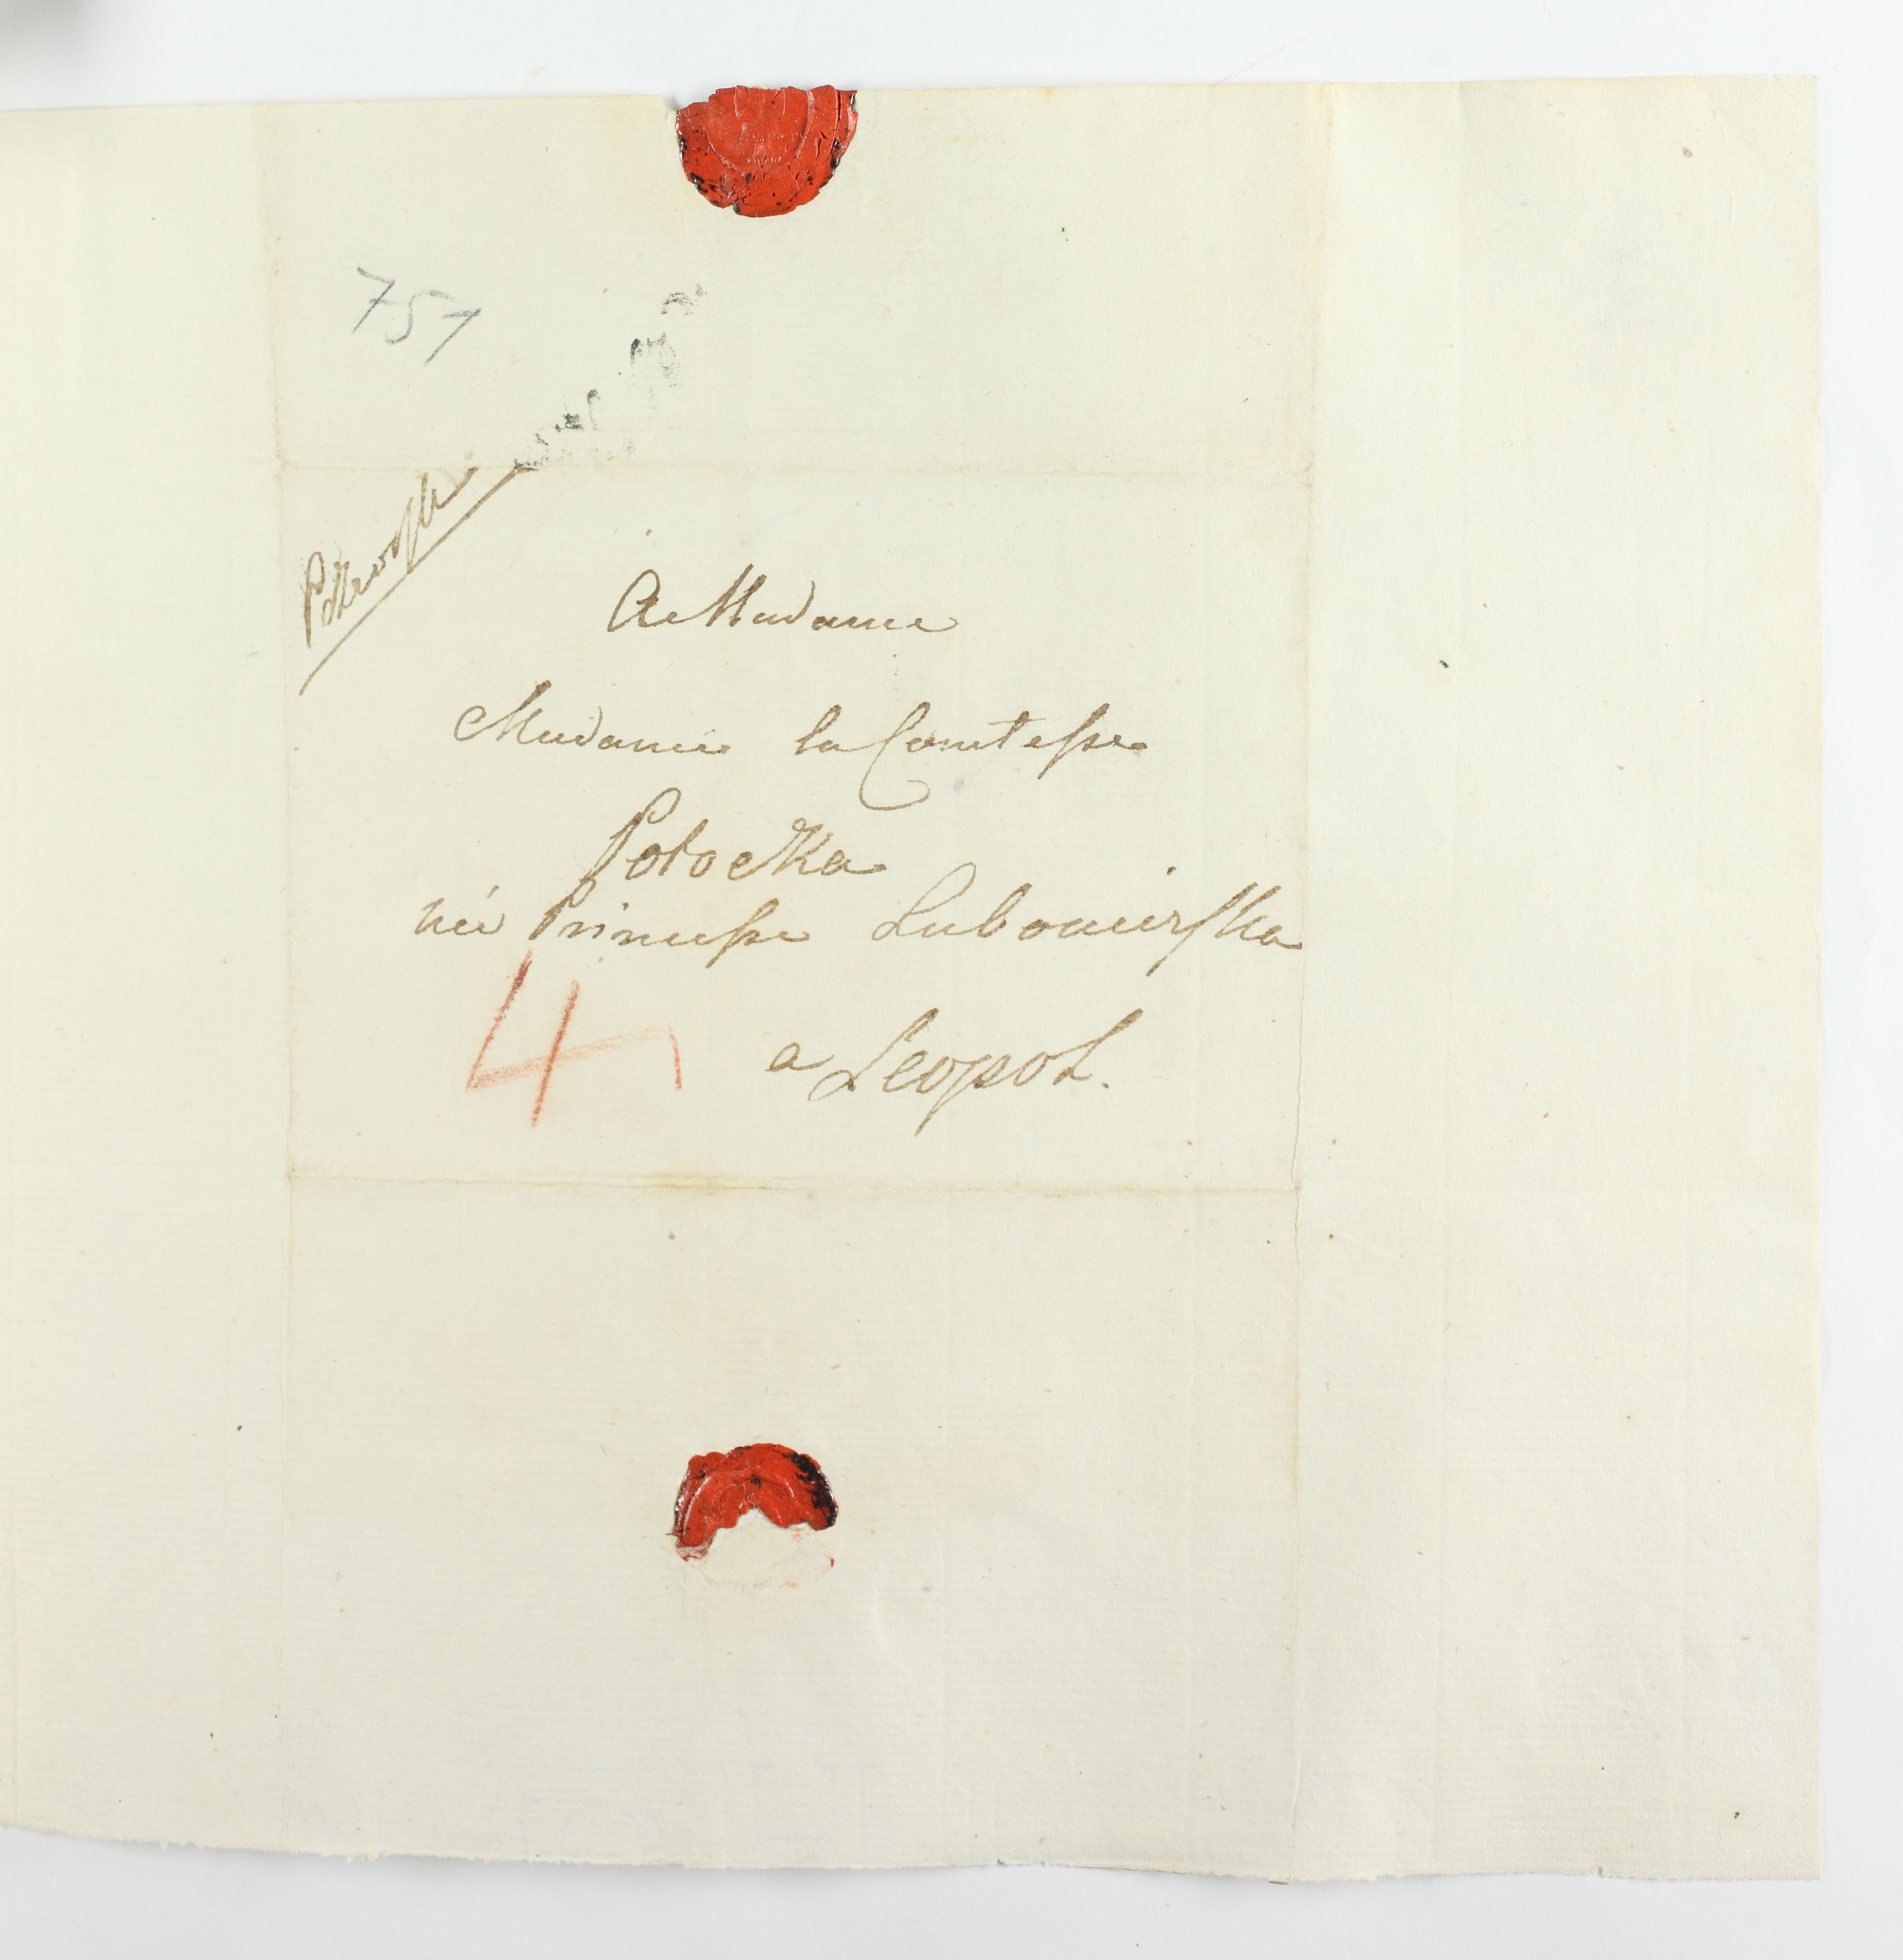 751
A Madame
Madame la Comtesse
Potocka
née Princesse Lubomirska
4
a Leopol.